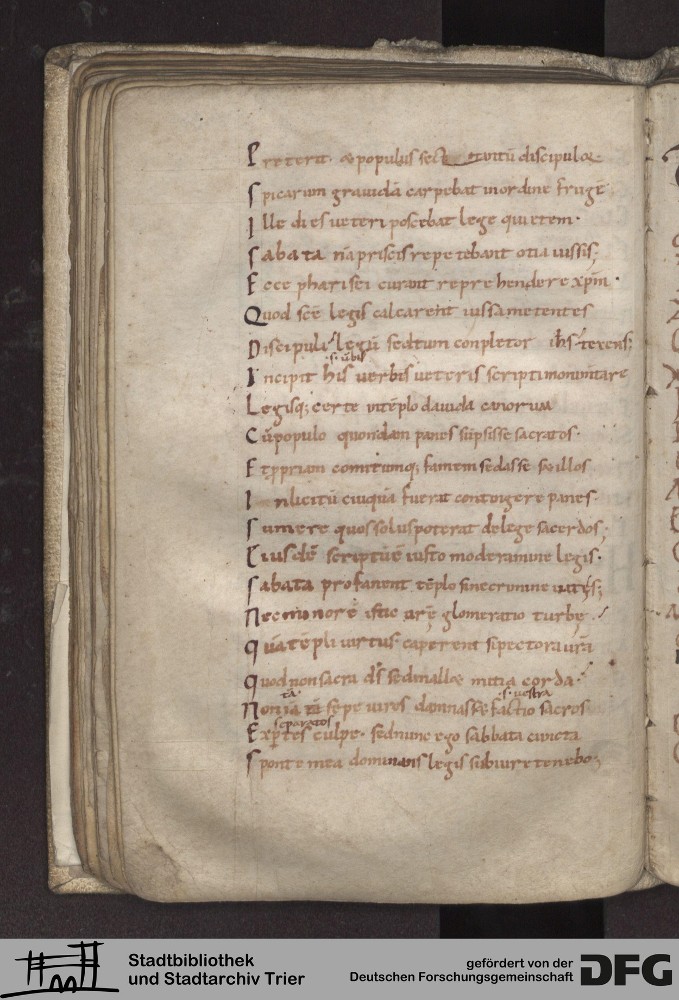 Preterit. & populus sect comitū discipulos
Spicarum gravidā carpebat in ordine frugē
Ille dies ueteri poscebat lege quietem.
Sabata nā priscis repetebant otia iussis;
Ecce pharisei curant reprehendere xp̄m.
Quod scē legis calcarent iussa metentes
Discipuli legū sed tum conpletor ih̄s texens;
s. u̅bis
Incipit his uerbis ueteris scripti monumtare
Legisq; certe in tēplo dauida canorum
Cū populo quondam panes sūpsisse sacratos.
Et ppriam comitumq; famem sedasse per illos
Inlicitū cuiquā fuerat contingere panes.
Sumere quos solus poterat de lege sacerdos;
Eiusdē scriptūe iusto moderamine legis.
Sabata profanent tēplo sine crimine uatēs;
Nec minor ē istic arē glomeratio turbę.
Quā tēpli uirtus caperent si pectora urā
Quod non sacra ds̄ sed mallet mitia corda.
tā. s. uestra
Non iā sepe uires damnasset factio sacros
separatos
Expertes culpe. sed nunc ego sabbata cuncta
Sponte mea dominans legis sub iure tenebo;
Stadtbibliothek
und Stadtarchiv Trier
gefördert von der
Deutschen Forschungsgemeinschaft
DFG